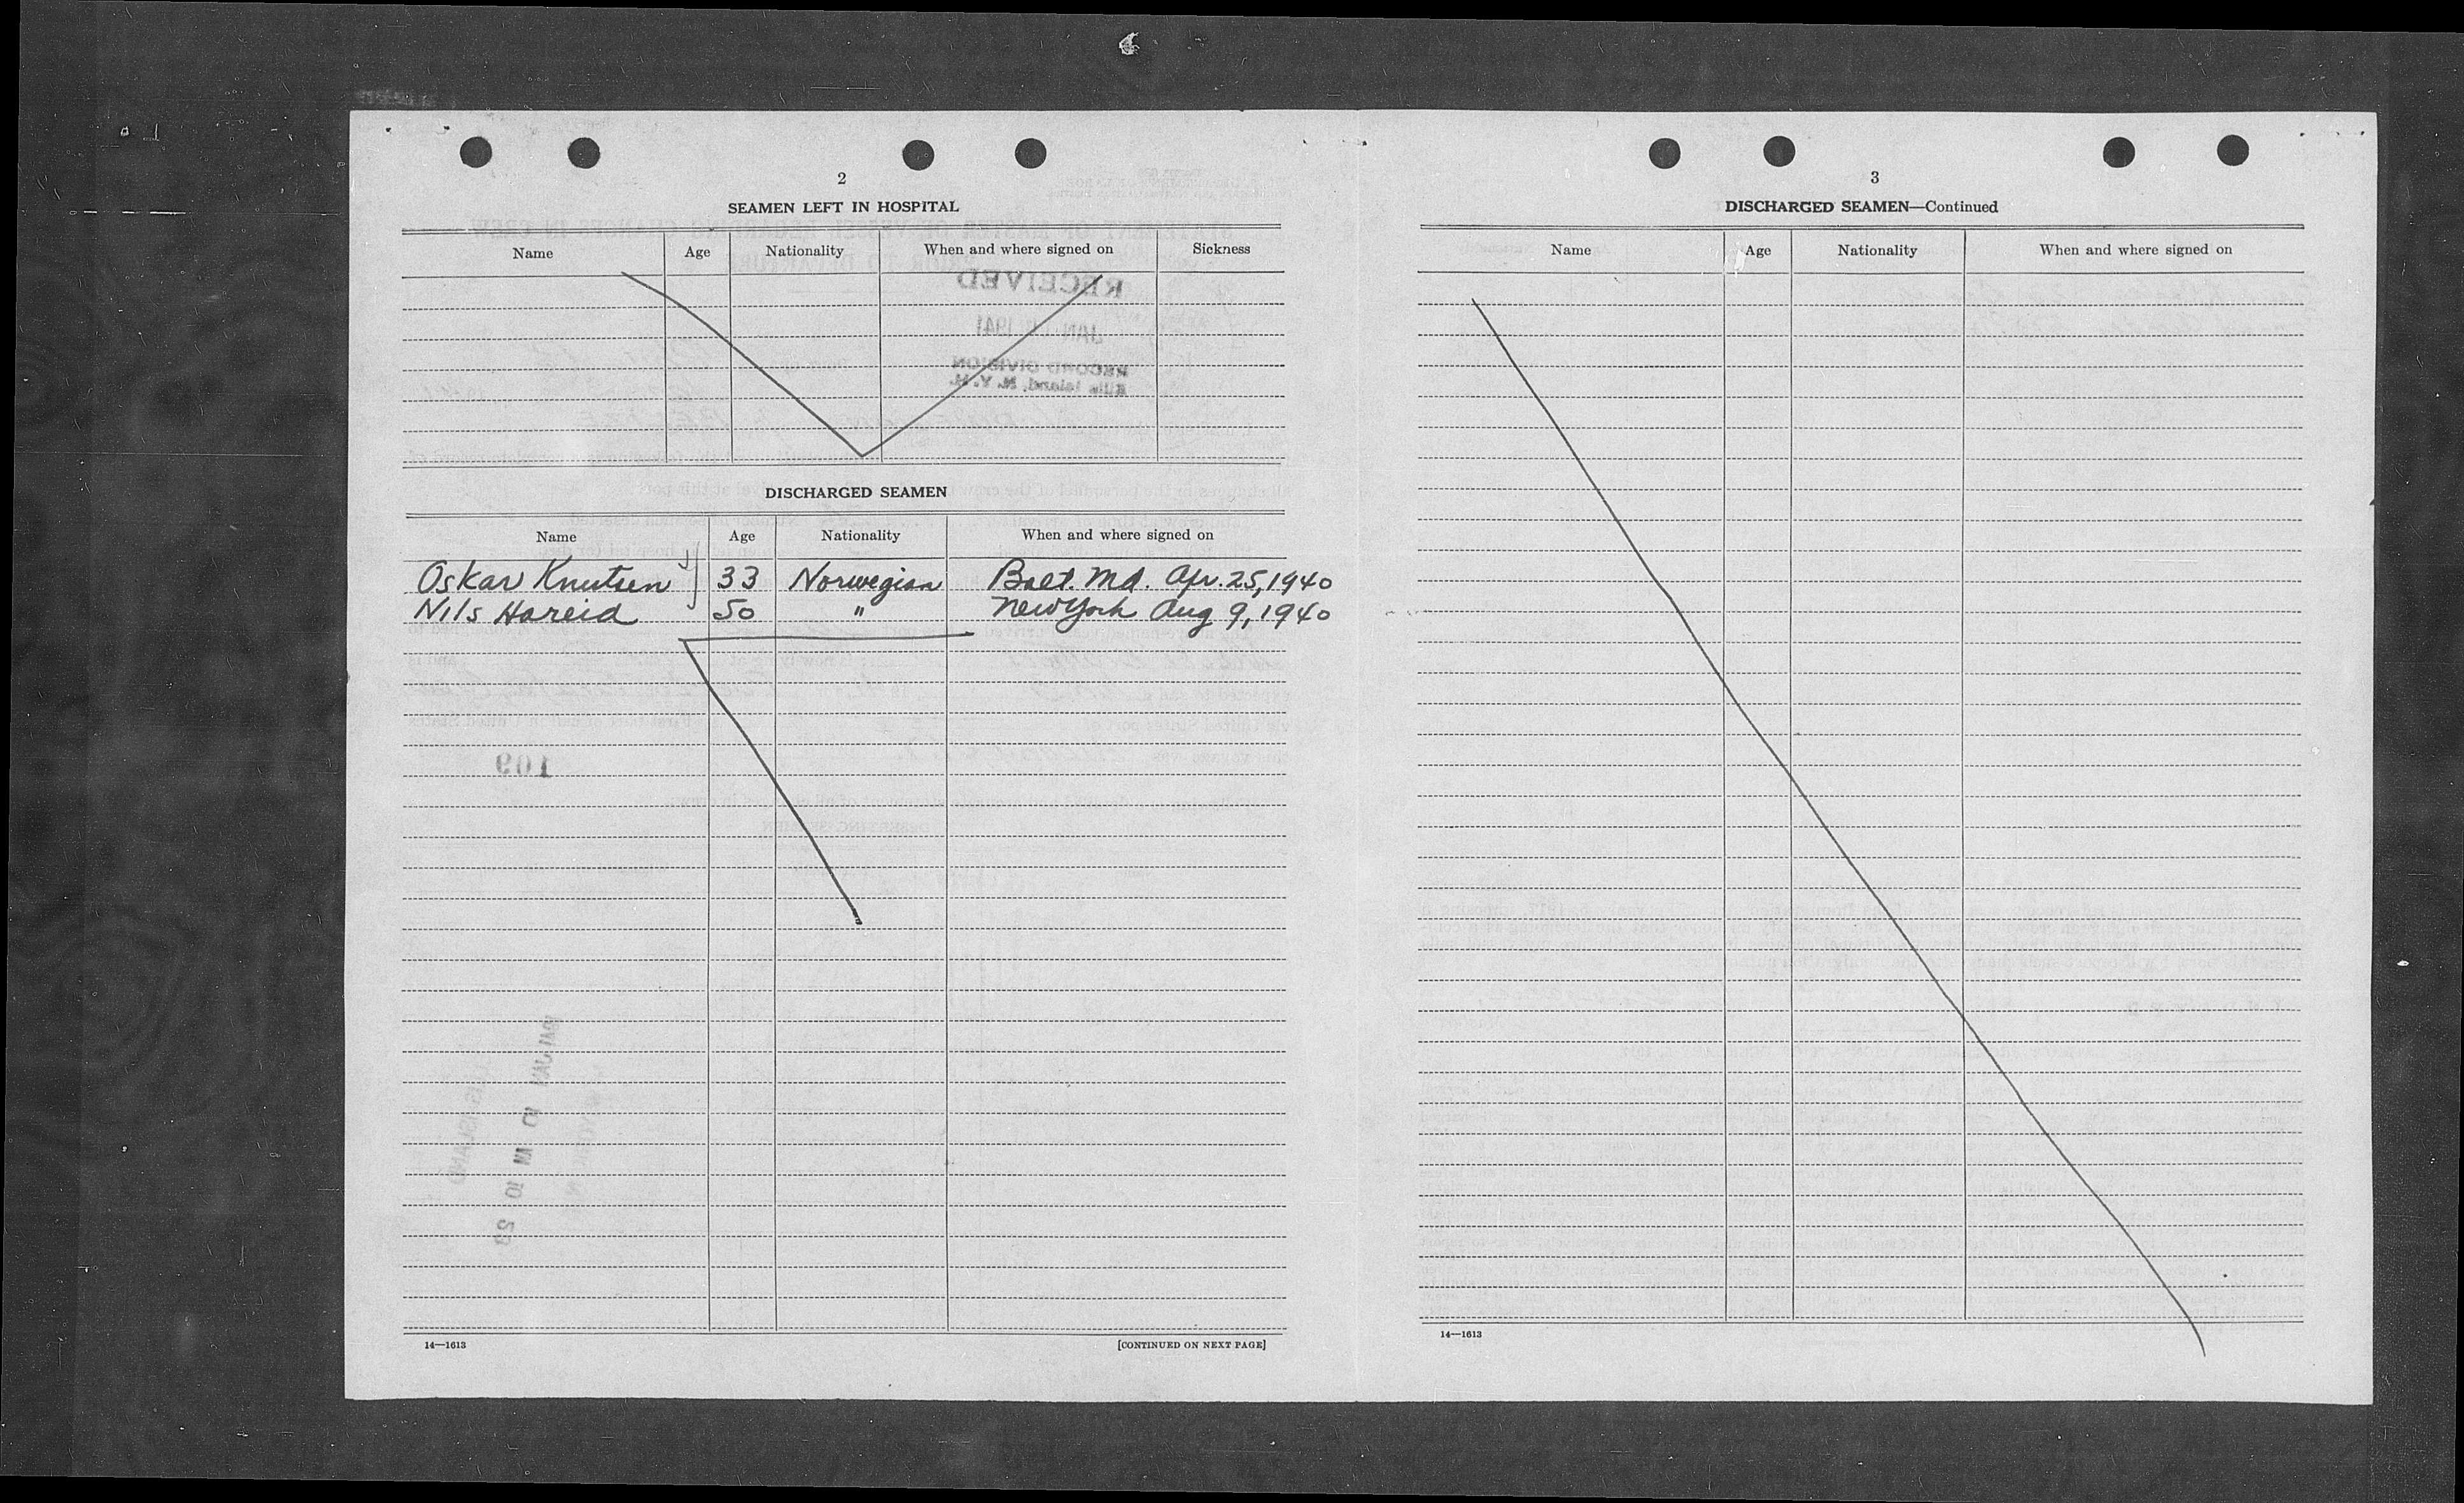 2
SEAMEN LEFT IN HOSPITAL
Name Age Nationality When and where signed on Sickness
RECEIVED
JAN 1941
RECORD DIVISION
Ellis Island, N. Y. H.
DISCHARGED SEAMEN
Name Age Nationality When and where signed on
Oskar Knutsen 33 Norwegian Balt. Md. Apr. 25, 1940
Nils Hareid 50 " New York Aug 9, 1940
109
14—1613 [CONTINUED ON NEXT PAGE]
3
DISCHARGED SEAMEN—Continued
Name Age Nationality When and where signed on
14—1613